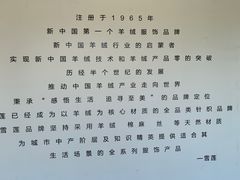 注册于1965年
新中国第一个羊绒服饰品牌
新中国羊绒行业的启蒙者
实现新中国羊绒技术和羊绒产品零的突破
历经半个世纪的发展
推动中国羊绒产业走向世界
秉承“感悟生活 追寻至美”的品牌定位
莲已经成为以羊绒为核心材质的全品类针织品牌
雪莲品牌坚持采用羊绒 棉麻丝 等天然材质
为城市中产阶层及知识精英提供适合其
生活场景的全系列服饰产品
一雪莲